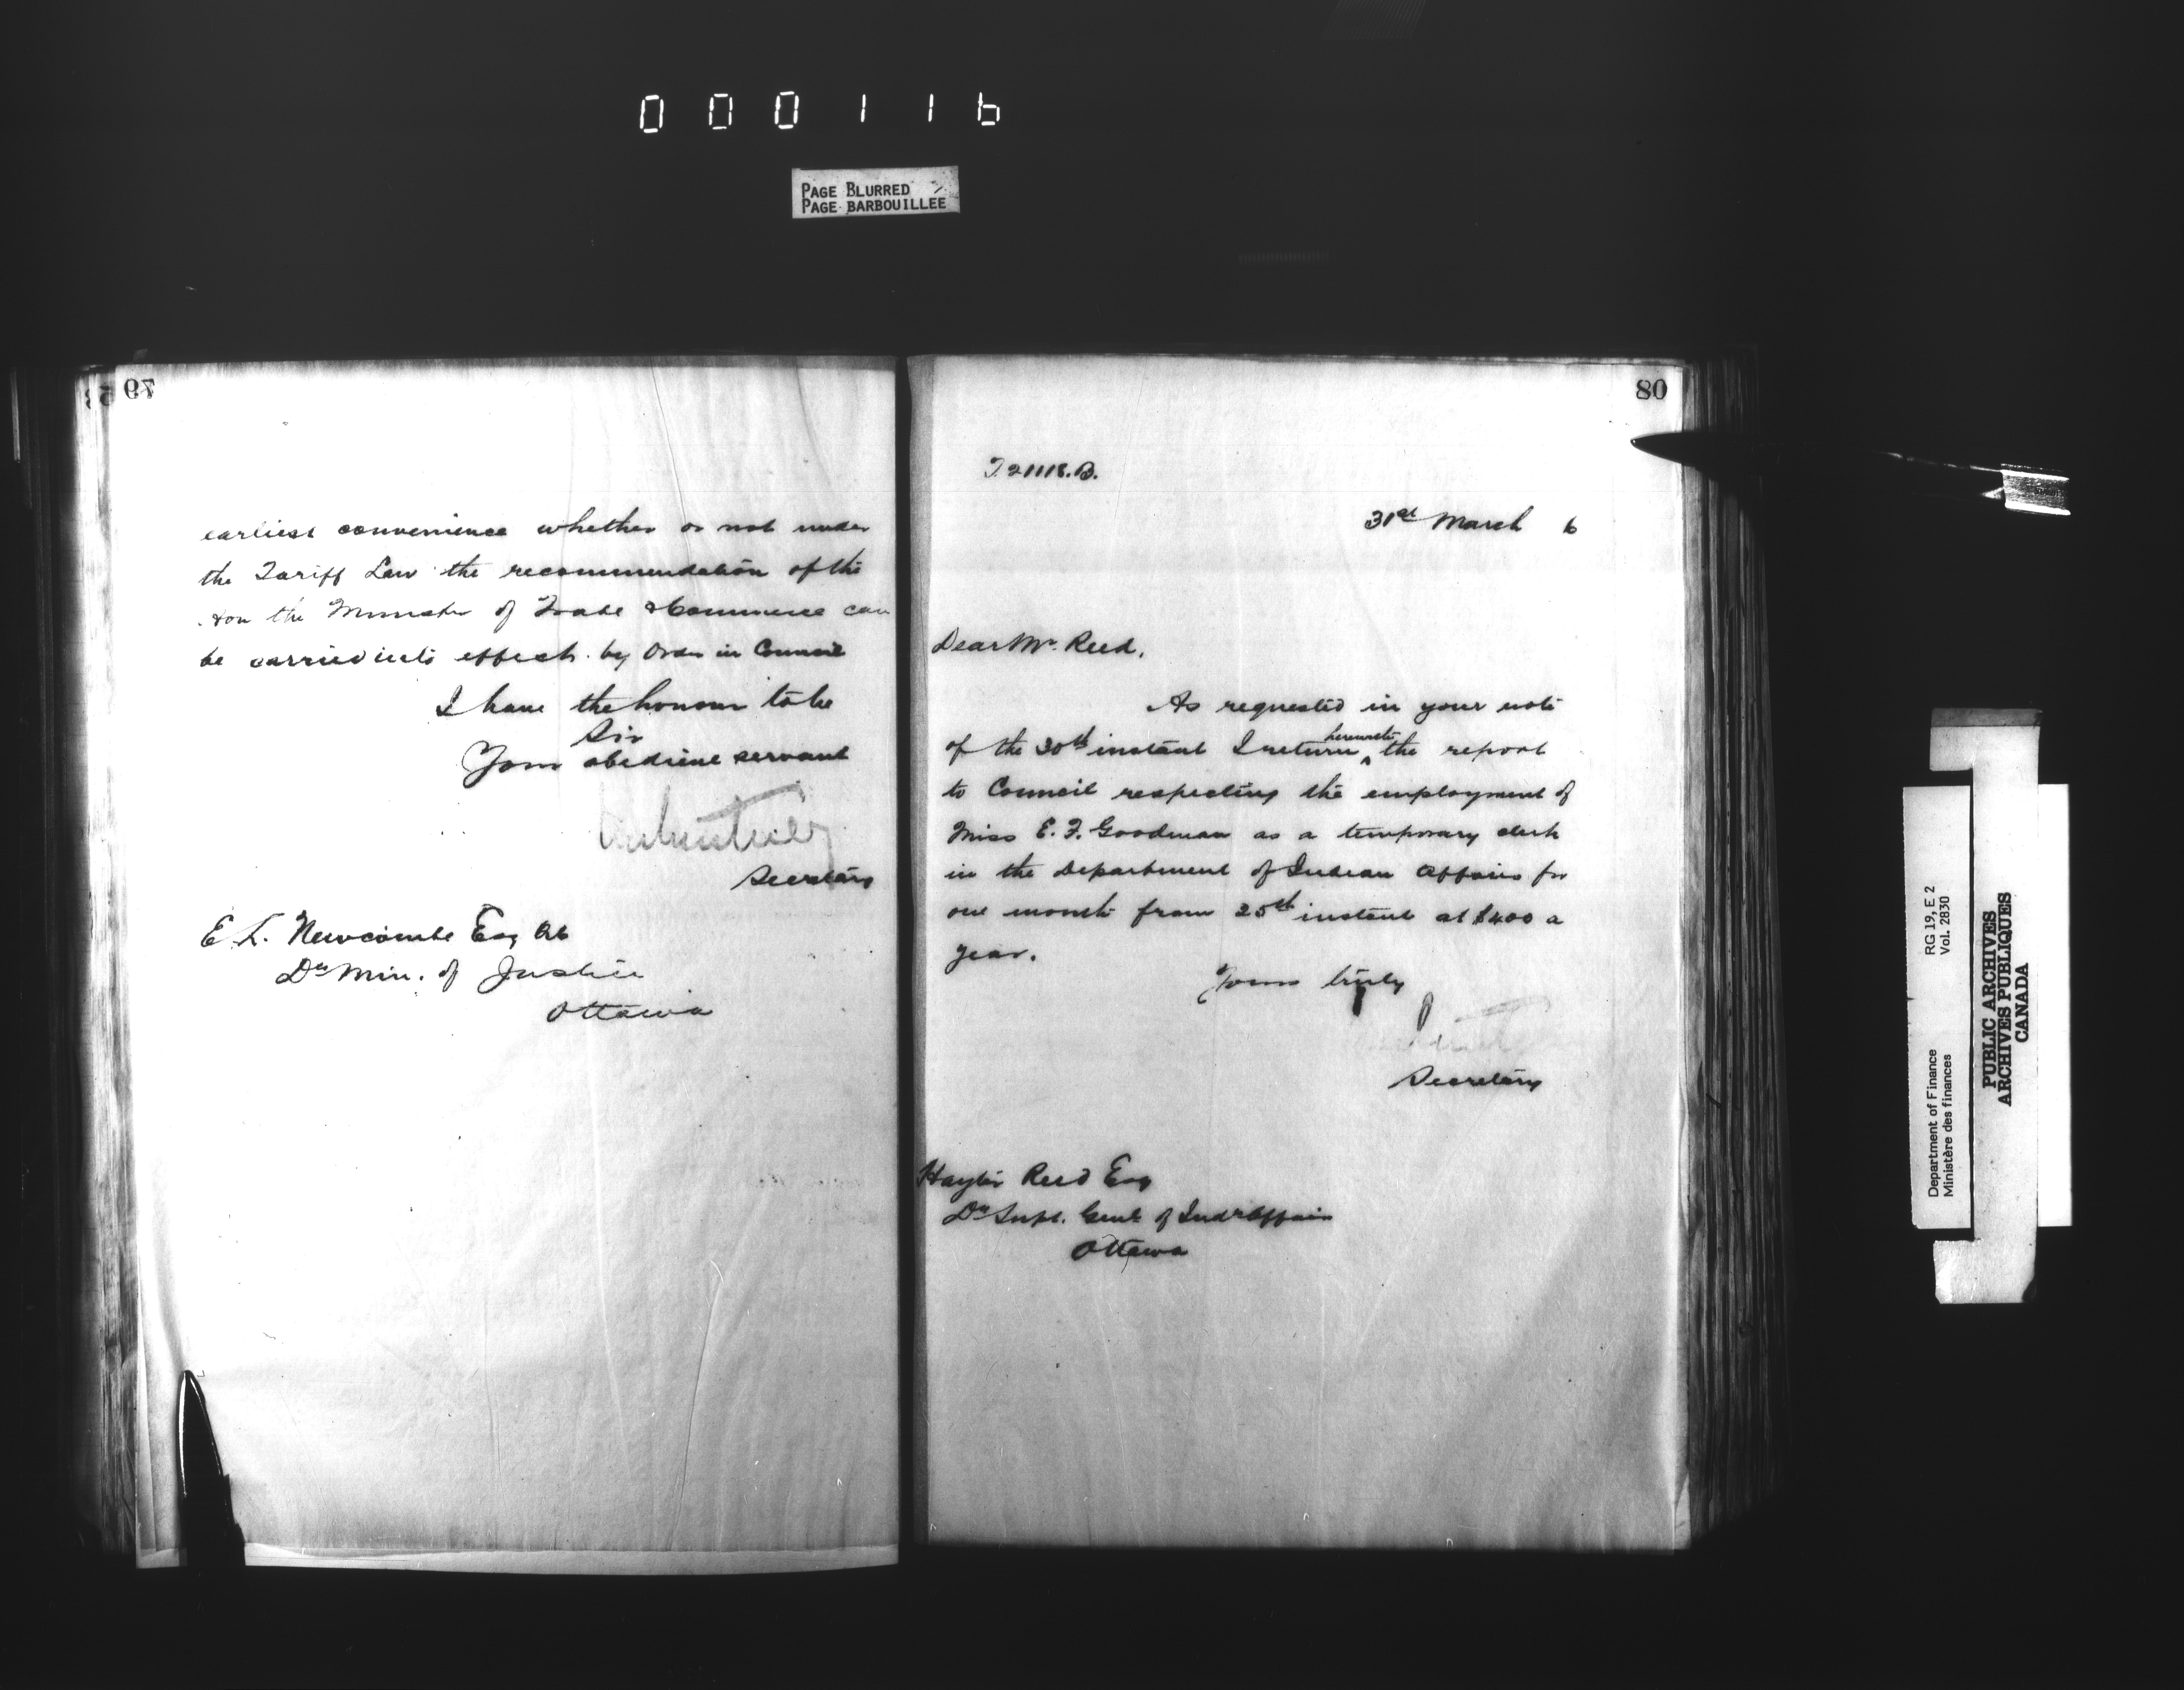 000116
PAGE BLURRED
PAGE BARBOUILLEE
79
earliest convenience whether or not under
the Tariff Law the recommendation of the
Hon the Minister of Trade & Commerce can
be carried into effect by Order in Council
I have the honour to be
Sir
Your obedient servant
Secretary
E. L. Newcombe Esq QC
Dy Min. of Justice
Ottawa
80
T.21118.B.
31st March 6
Dear Mr. Reed,
As requested in your note
of the 30th instant I return herewith the report
to Council respecting the employment of
Miss E. F. Goodman as a temporary clerk
in the Department of Indian Affairs for
one month from 25th instant at $400 a
year.
Yours truly
Secretary
Hayter Reed Esq
Dy Supt. Genl of Ind Affairs
Ottawa
Department of Finance
Ministère des finances
RG 19, E 2
Vol. 2830
PUBLIC ARCHIVES
ARCHIVES PUBLIQUES
CANADA